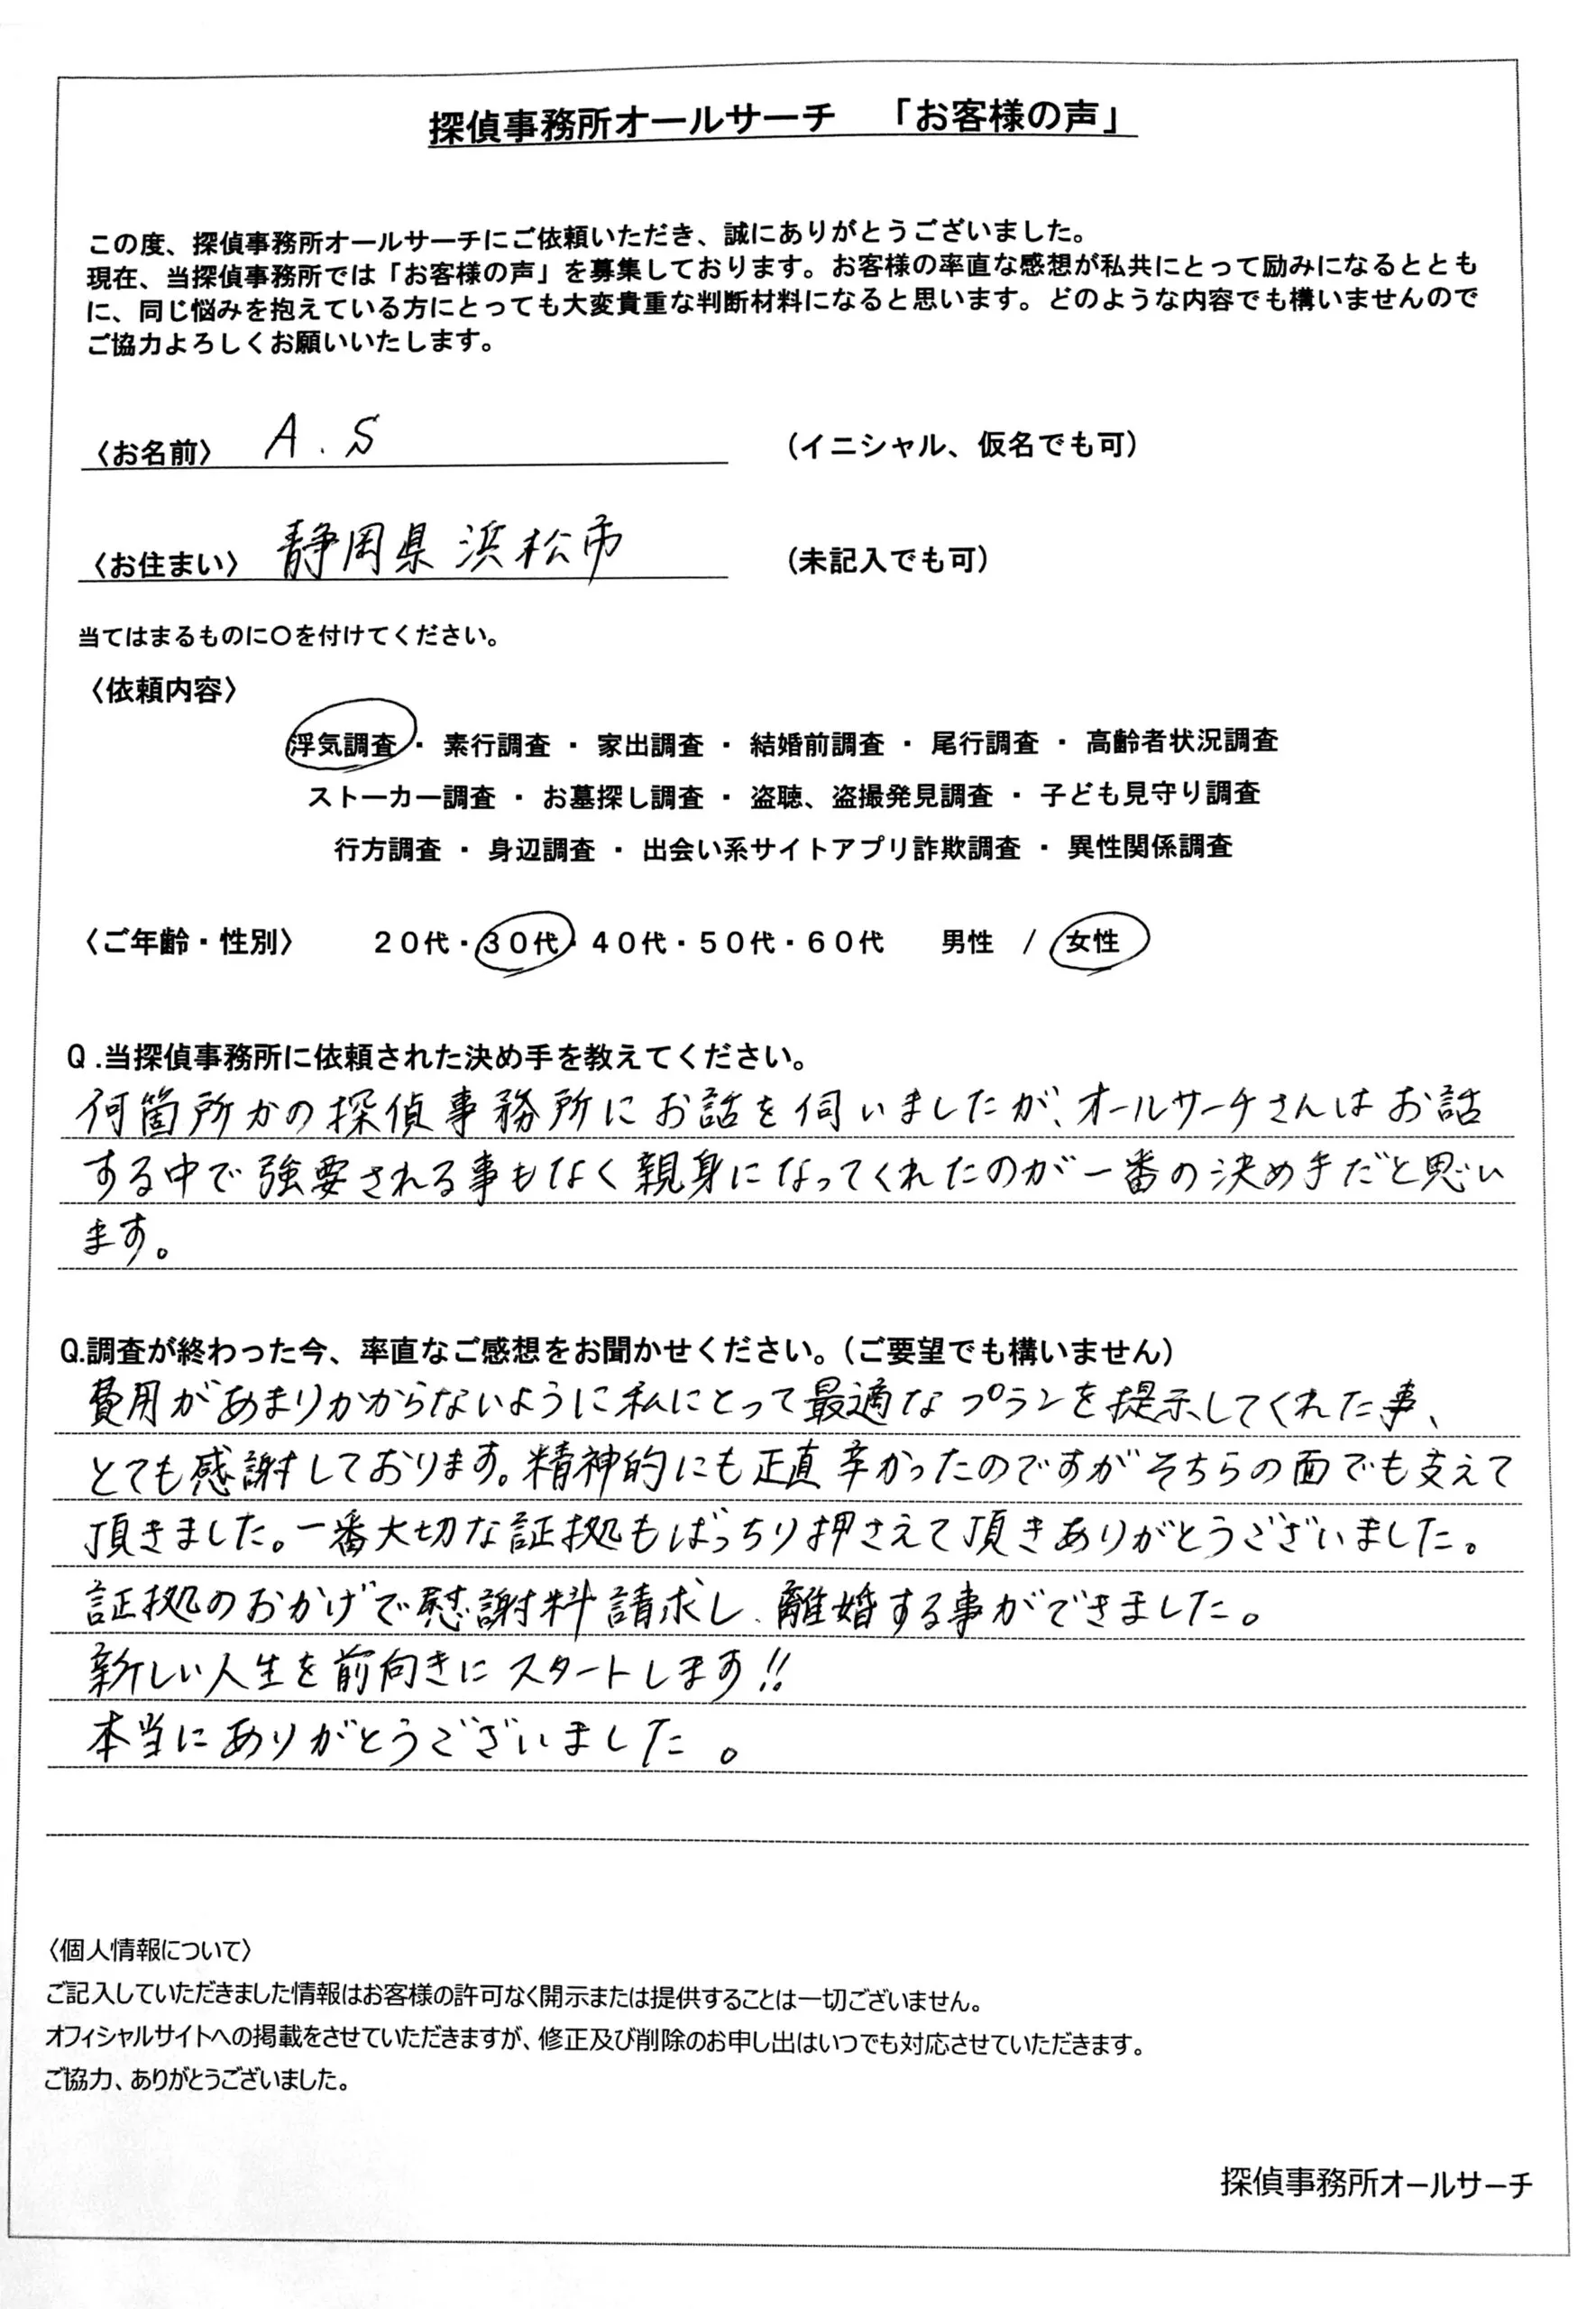 探偵事務所オールサーチ 「お客様の声」
この度、探偵事務所オールサーチにご依頼いただき、誠にありがとうございました。
現在、当探偵事務所では「お客様の声」を募集しております。お客様の率直な感想が私共にとって励みになるととも
に、同じ悩みを抱えている方にとっても大変貴重な判断材料になると思います。どのような内容でも構いませんので
ご協力よろしくお願いいたします。
〈お名前〉 A.S (イニシャル、仮名でも可)
〈お住まい〉 静岡県浜松市 (未記入でも可)
当てはまるものに〇を付けてください。
〈依頼内容〉
浮気調査・素行調査・家出調査・結婚前調査・尾行調査・高齢者状況調査
ストーカー調査・お墓探し調査・盗聴、盗撮発見調査・子ども見守り調査
行方調査・身辺調査・出会い系サイトアプリ詐欺調査・異性関係調査
〈ご年齢・性別〉 20代・30代・40代・50代・60代 男性 / 女性
Q.当探偵事務所に依頼された決め手を教えてください。
何箇所かの探偵事務所にお話を伺いましたが、オールサーチさんはお話
する中で強要される事もなく親身になってくれたのが一番の決め手だと思い
ます。
Q.調査が終わった今、率直なご感想をお聞かせください。(ご要望でも構いません)
費用があまりかからないように私にとって最適なプランを提示してくれた事、
とても感謝しております。精神的にも正直辛かったのですがそちらの面でも支えて
頂きました。一番大切な証拠もばっちり押さえて頂きありがとうございました。
証拠のおかげで慰謝料請求し、離婚する事ができました。
新しい人生を前向きにスタートします!!
本当にありがとうございました。
〈個人情報について〉
ご記入していただきました情報はお客様の許可なく開示または提供することは一切ございません。
オフィシャルサイトへの掲載をさせていただきますが、修正及び削除のお申し出はいつでも対応させていただきます。
ご協力、ありがとうございました。
探偵事務所オールサーチ